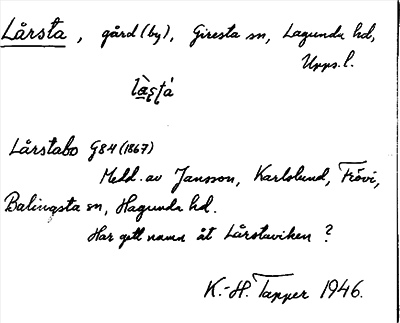 Lårsta, gård (by), Giresta sn, Lagunda hd,
Upps. l.
Lårstabo G84 (1867)
Medd. av Jansson, Karlslund, Frövi,
Balingsta sn, Hagunda hd.
Har gett namn åt Lårstaviken ?
K.-H. Tapper 1946.